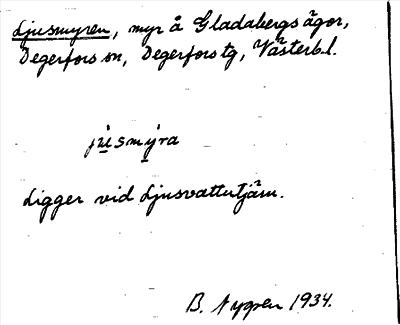 Ljusmyren, myr å Gladabergs ägor,
Degerfors sn, Degerfors tg, Västerb.l.
jùsmýra
Ligger vid Ljusvattutjärn.
B. Nygren 1934.